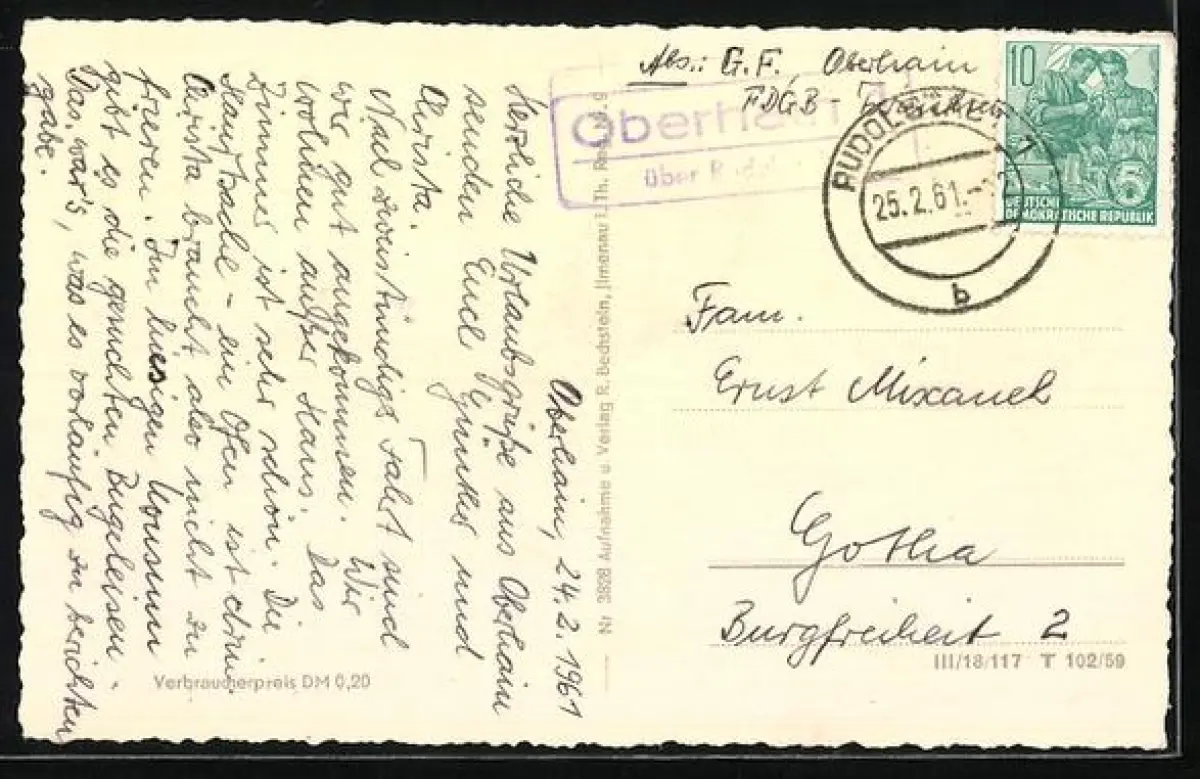 Oberhain, 24.2.1961
Herzliche Urlaubsgrüße aus Oberhain
senden Euch Günther und
Christa.
Nach zweistündiger Fahrt sind
wir gut angekommen. Wir
wohnen außer Haus. Das
Zimmer ist sehr schön. Die
Hauptsache – ein Ofen ist drin
Christa braucht also nicht zu
frieren. Im hiesigen Konsum
gibt es die gesuchten Bügeleisen.
Das wär's, was es vorläufig zu berichten
gäbe.
Verbraucherpreis DM 0,20
Nr 3828 Aufnahme u. Verlag R. Bechstein, Ilmenau i. Th. Reg.
Oberhain
über
Abs.: G.F., Oberhain
FDGB -
RUDOLSTADT 1
25.2.61.
b
10
DEUTSCHE
DEMOKRATISCHE REPUBLIK
5
Fam.
Ernst Mixanek
Gotha
Burgfreiheit 2
III/18/117 T 102/59